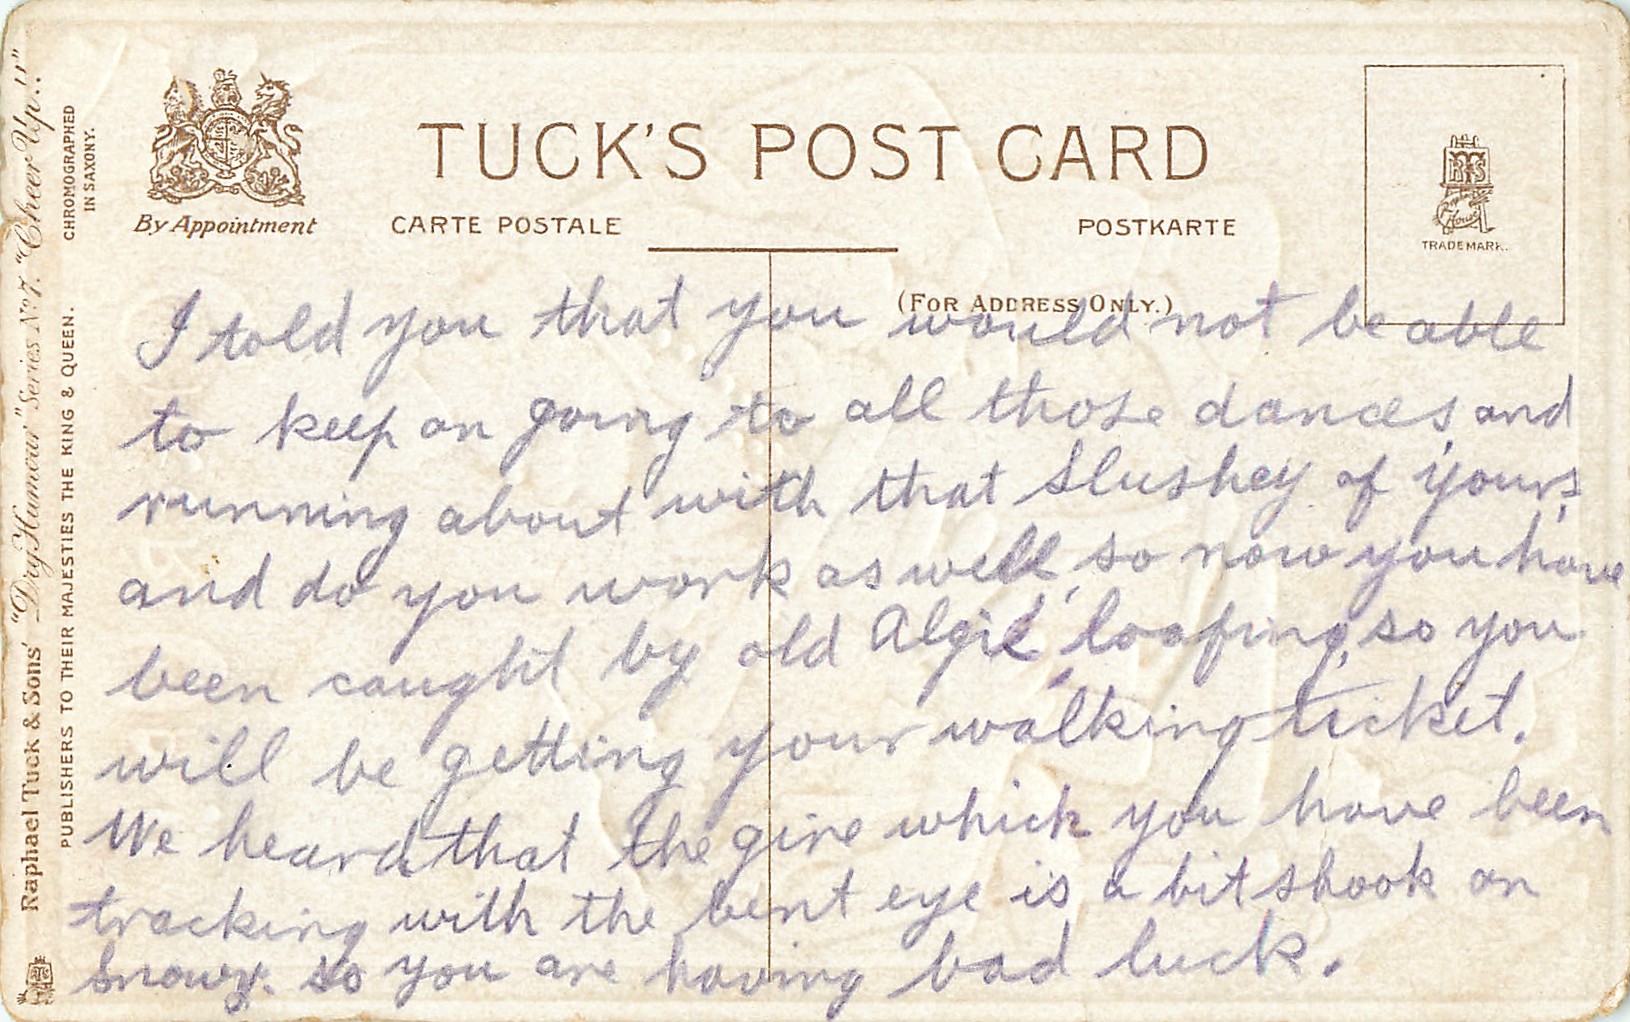 TUCK'S POST CARD
By Appointment
CARTE POSTALE
POSTKARTE
(FOR ADDRESS ONLY.)
TRADE MARK.
CHROMOGRAPHED
IN SAXONY.
Raphael Tuck & Sons' "Dry Humour" Series No 7. "Cheer Up!!"
PUBLISHERS TO THEIR MAJESTIES THE KING & QUEEN.
I told you that you would not be able
to keep on going to all those dances, and
running about with that Slushey of yours,
and do you work as well, so now you have
been caught by old Algie, loafing, so you
will be getting your walking ticket.
We heard that the gire which you have been
tracking with the bent eye is a bit shook on
Snowy. so you are having bad luck.